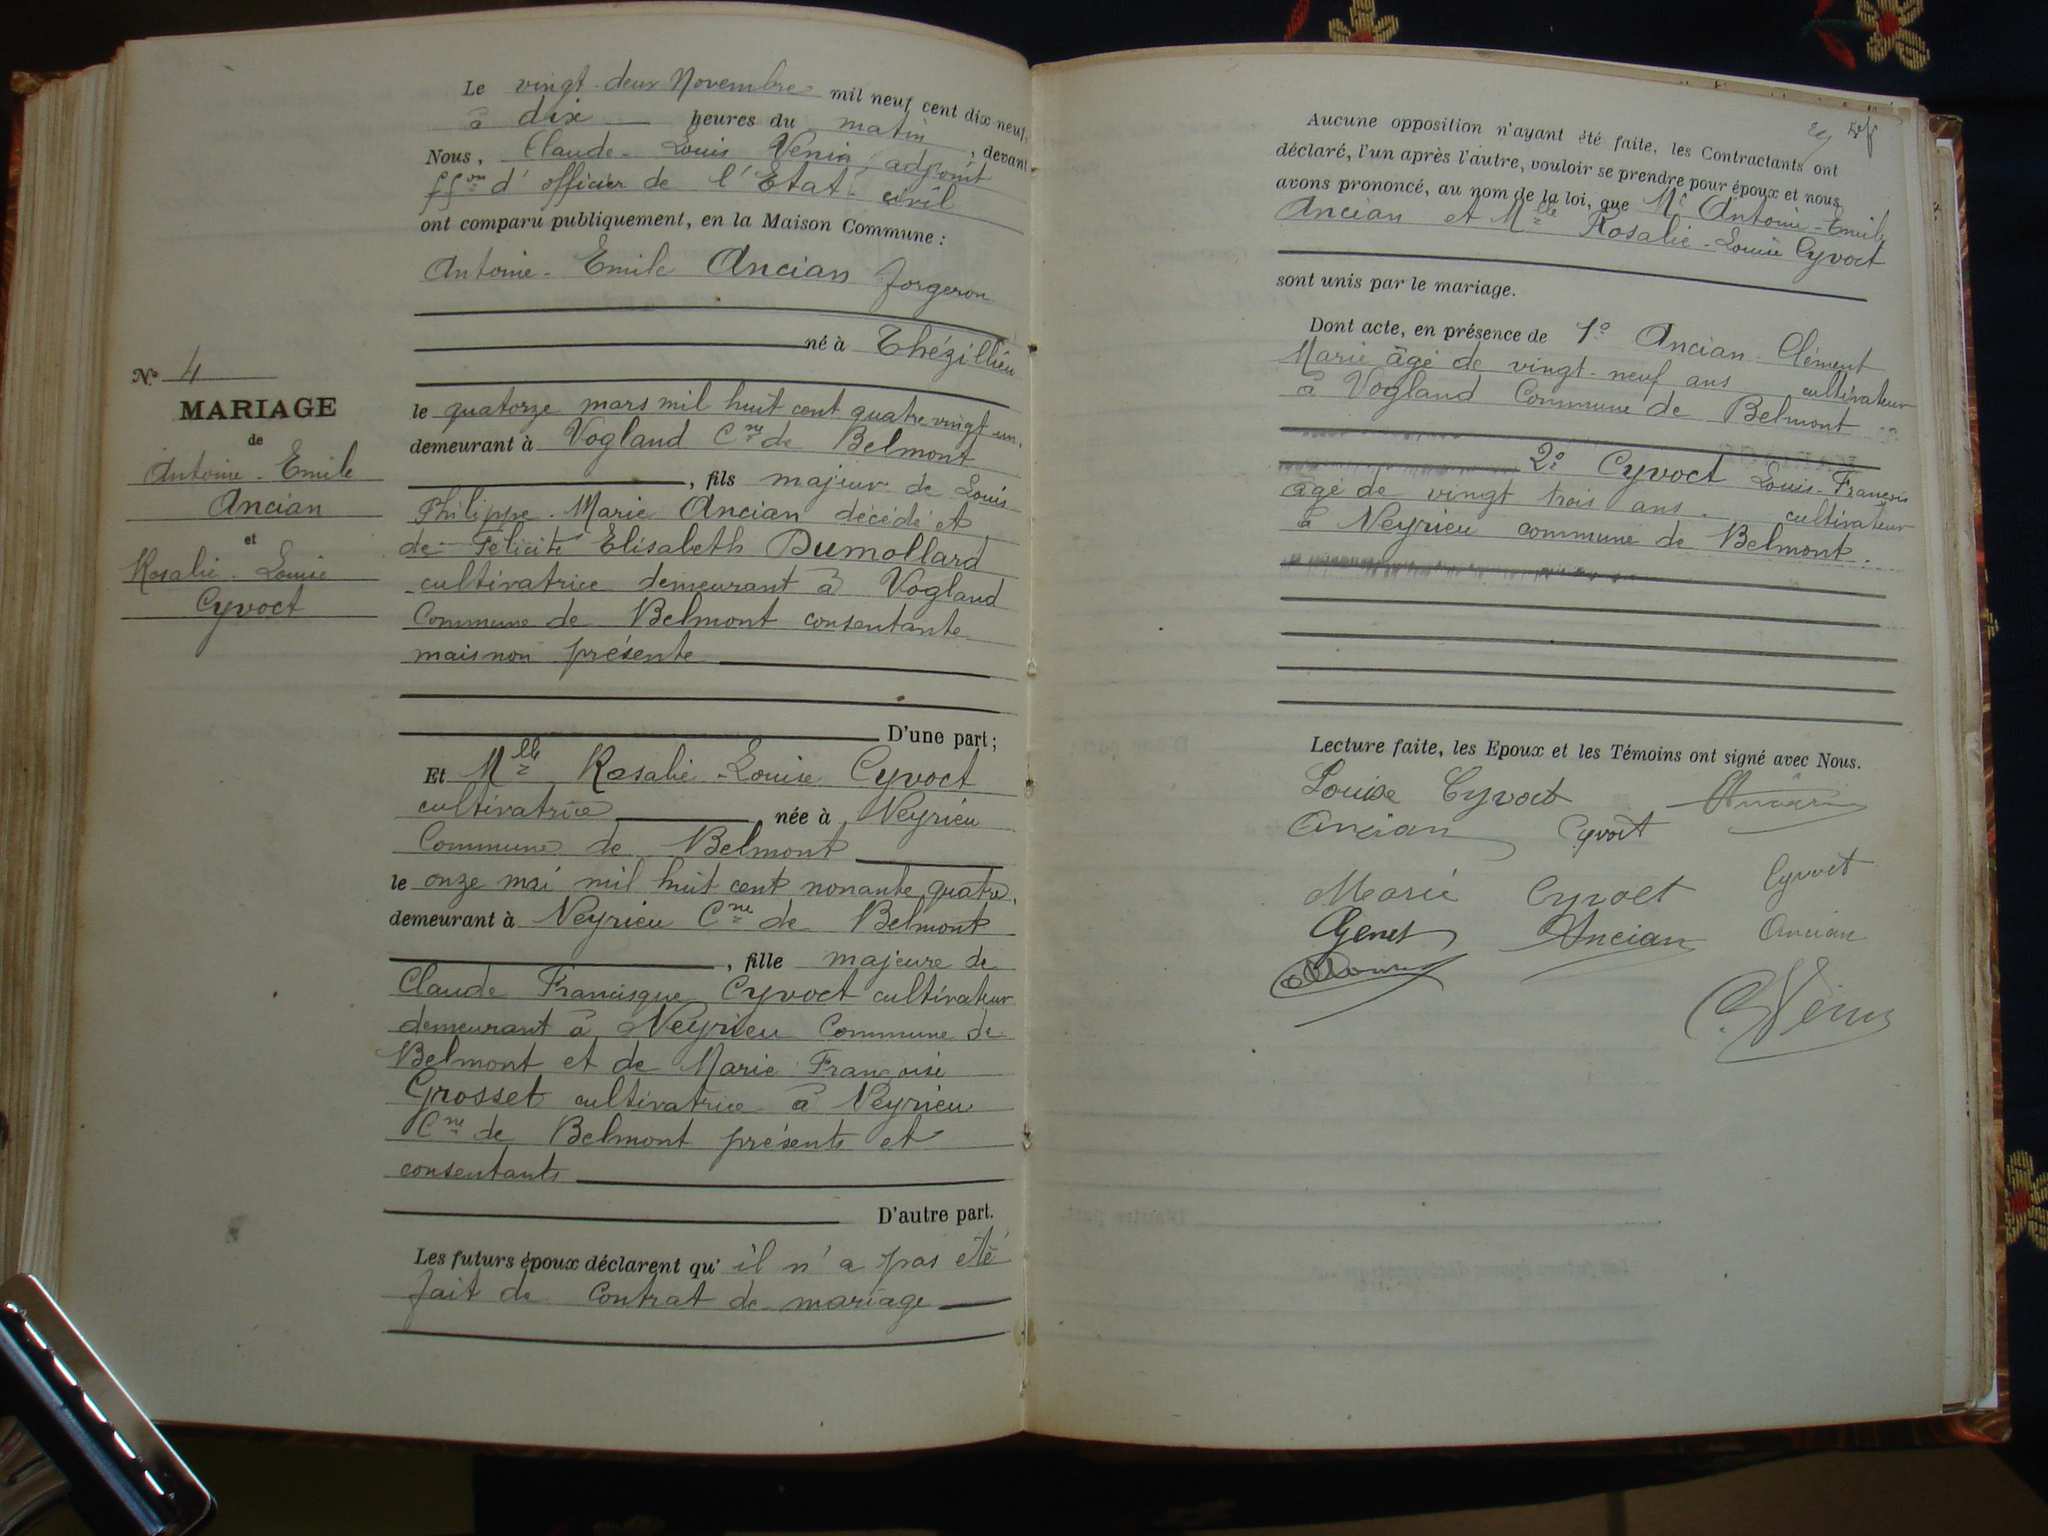 Le vingt-deux Novembre mil neuf cent dix neuf,
à dix heures du matin, devant
Nous, Claude-Louis Vénin, adjoint
ff.on d'officier de l'Etat-civil
ont comparu publiquement, en la Maison Commune :
Antoine-Emile Ancian forgeron
né à Thézillieu
le quatorze mars mil huit cent quatre vingt-un,
demeurant à Vogland Cne de Belmont
, fils majeur de Louis
Philippe-Marie Ancian décédé et
de Félicité Elisabeth Dumollard
cultivatrice demeurant à Vogland
Commune de Belmont consentante
mais non présente
D'une part ;
Et Mlle Rosalie-Louise Cyvoct
cultivatrice née à Neyrieu
Commune de Belmont
le onze mai mil huit cent nonante quatre,
demeurant à Neyrieu Cne de Belmont
, fille majeure de
Claude Francisque Cyvoct cultivateur
demeurant à Neyrieu Commune de
Belmont et de Marie Françoise
Grosset cultivatrice à Neyrieu
Cne de Belmont présents et
consentants
D'autre part.
Les futurs époux déclarent qu' il n'a pas été
fait de contrat de mariage
N° 4
MARIAGE
de
Antoine-Emile
Ancian
et
Rosalie-Louise
Cyvoct
Aucune opposition n'ayant été faite, les Contractants ont
déclaré, l'un après l'autre, vouloir se prendre pour époux et nous
avons prononcé, au nom de la loi, que Mr Antoine-Emile
Ancian et Mlle Rosalie-Louise Cyvoct
sont unis par le mariage.
Dont acte, en présence de 1° Ancian Clément
Marie âgé de vingt-neuf ans cultivateur
à Vogland Commune de Belmont
2° Cyvoct Louis-François
âgé de vingt trois ans cultivateur
à Neyrieu commune de Belmont.
Lecture faite, les Epoux et les Témoins ont signé avec Nous.
Louise Cyvoct
Ancian Cyvoct
Marie Cyvoct Cyvoct
Genet Ancian Ancian
C. Vénin